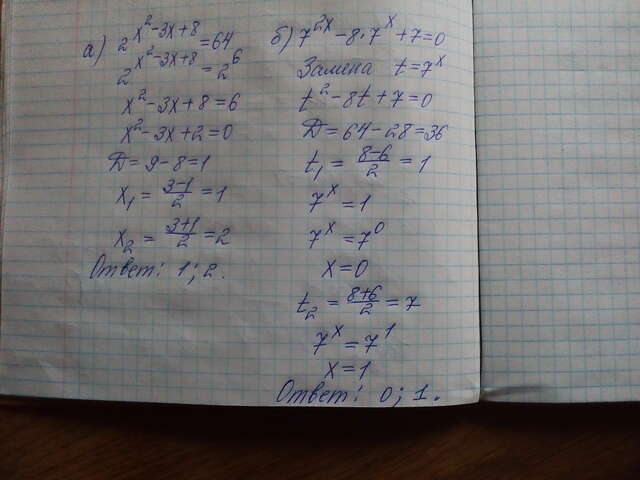 а) 2^{x²-3x+8} = 64
2^{x²-3x+8} = 2⁶
x² - 3x + 8 = 6
x² - 3x + 2 = 0
D = 9 - 8 = 1
x₁ = (3-1)/2 = 1
x₂ = (3+1)/2 = 2
Ответ: 1; 2.
б) 7^{2x} - 8·7^x + 7 = 0
Замена t = 7^x
t² - 8t + 7 = 0
D = 64 - 28 = 36
t₁ = (8-6)/2 = 1
7^x = 1
7^x = 7⁰
x = 0
t₂ = (8+6)/2 = 7
7^x = 7¹
x = 1
Ответ: 0; 1.